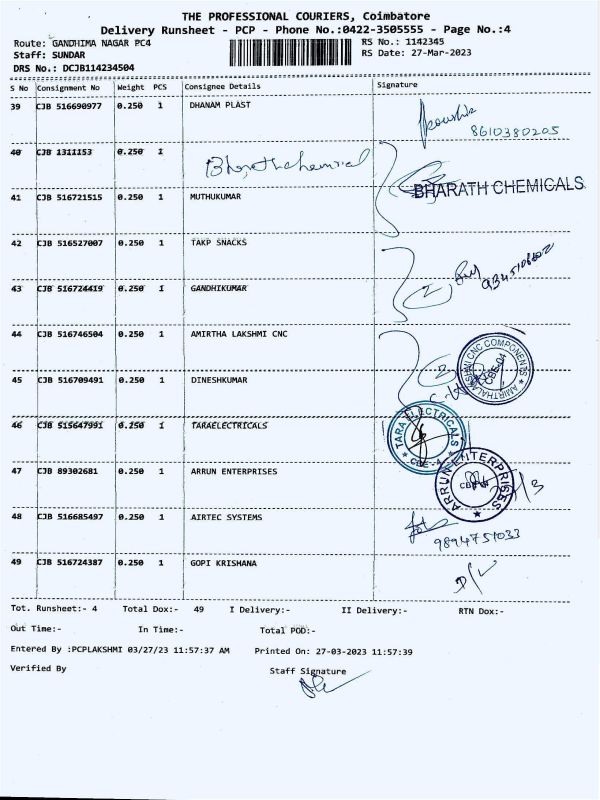 THE PROFESSIONAL COURIERS, Coimbatore
Delivery Runsheet - PCP - Phone No.:0422-3505555 - Page No.:4
Route: GANDHIMA NAGAR PC4 RS No.: 1142345
Staff: SUNDAR RS Date: 27-Mar-2023
DRS No.: DCJB114234504
S No Consignment No Weight PCS Consignee Details Signature
39 CJB 516690977 0.250 1 DHANAM PLAST
8610380205
40 CJB 1311153 0.250 1 Bharathchemical
BHARATH CHEMICALS
41 CJB 516721515 0.250 1 MUTHUKUMAR
42 CJB 516527007 0.250 1 TAKP SNACKS
43 CJB 516724419 0.250 1 GANDHIKUMAR
2
44 CJB 516746504 0.250 1 AMIRTHA LAKSHMI CNC
AMIRTHALAKSHMI CNC COMPONENTS
CBE-04
45 CJB 516709491 0.250 1 DINESHKUMAR
46 CJB 515647991 0.250 1 TARAELECTRICALS
TARA ELECTRICALS
CBE-4
47 CJB 89302681 0.250 1 ARRUN ENTERPRISES
ARRUN ENTERPRISES
48 CJB 516685497 0.250 1 AIRTEC SYSTEMS
9894751033
49 CJB 516724387 0.250 1 GOPI KRISHANA
Tot. Runsheet:- 4 Total Dox:- 49 I Delivery:- II Delivery:- RTN Dox:-
Out Time:- In Time:- Total POD:-
Entered By :PCPLAKSHMI 03/27/23 11:57:37 AM Printed On: 27-03-2023 11:57:39
Verified By Staff Signature